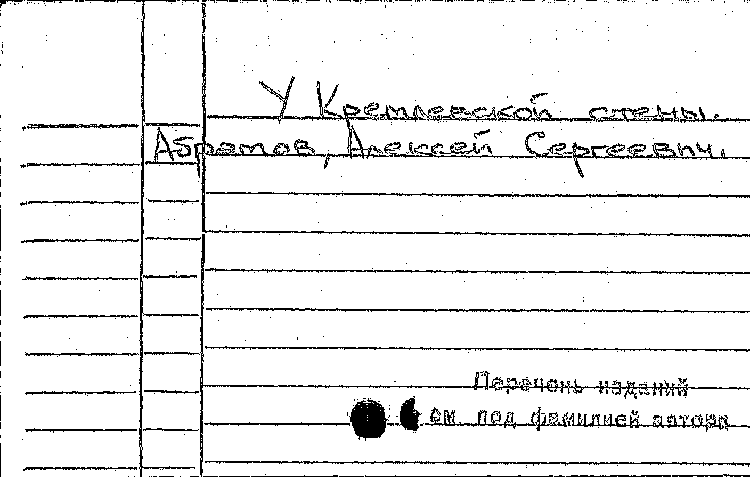 У Кремлевской стены.
Абрамов, Алексей Сергеевич.
Перечень изданий
см. под фамилией автора